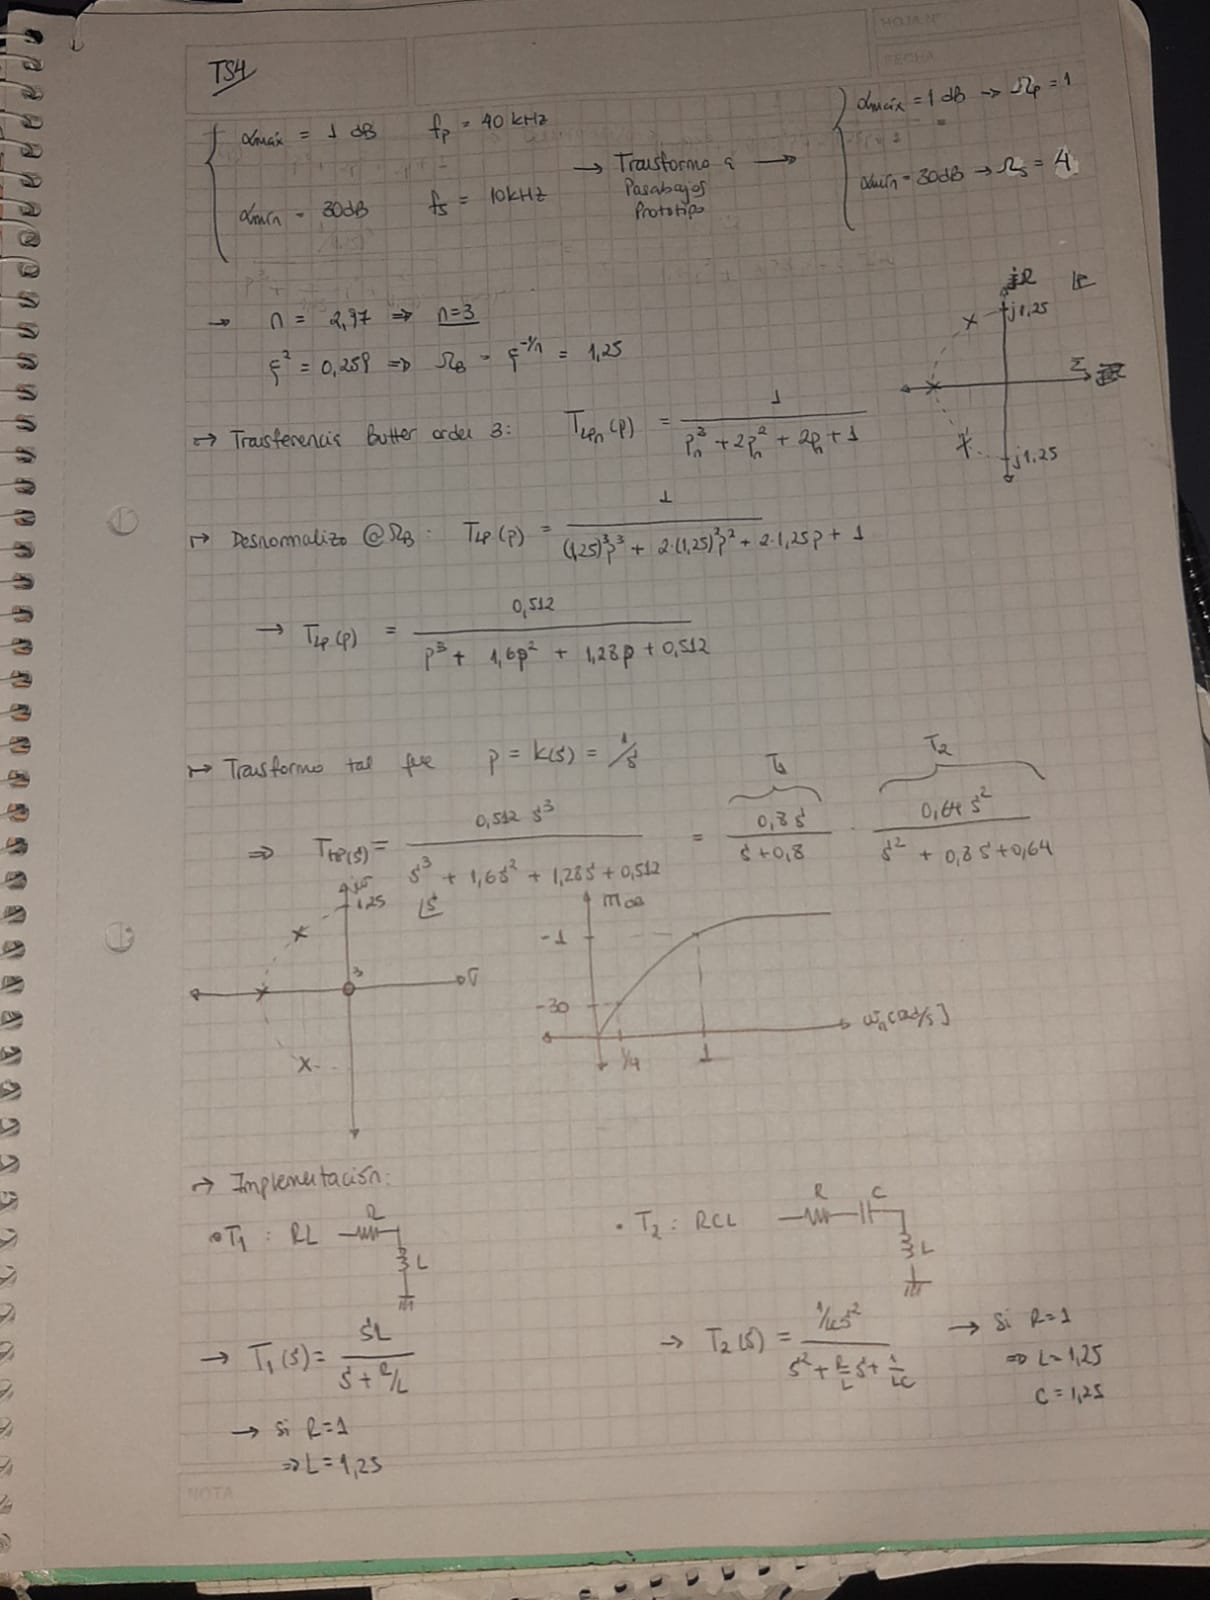 HOJA N°
FECHA
TS4
αmáx = 1 dB fp = 40 kHz
αmín = 30dB fs = 10kHz
→ Transformo a →
Pasabajos
Prototipo
αmáx = 1 dB → Ωp = 1
αmín = 30dB → Ωs = 4
→ n = 2,97 ⇒ n=3
ξ² = 0,259 ⇒ ΩB = ξ^(-1/n) = 1,25
jΩ
j1,25
Σ
j1,25
→ Trasferencia Butter orden 3: TLPn(p) = 1 / (pn³ + 2pn² + 2pn + 1)
→ Desnormalizo @ΩB: TLP(p) = 1 / ((1,25)³p³ + 2·(1,25)²p² + 2·1,25p + 1)
→ TLP(p) = 0,512 / (p³ + 1,6p² + 1,28p + 0,512)
→ Trasformo tal que p = k(s) = 1/s
T1 T2
⇒ THP(s) = 0,512 s³ / (s³ + 1,6s² + 1,28s + 0,512) = 0,8s / (s + 0,8) · 0,64 s² / (s² + 0,8s + 0,64)
1,25
3
σ
-1
-30
1/4
1
→ Implementación:
• T1 : RL R
L
• T2 : RCL R C
L
→ T1(s) = sL / (s + R/L)
→ si R=1
⇒ L = 1,25
→ T2(s) = 1/4s² / (s² + R/L s + 1/LC) → Si R=1
⇒ L = 1,25
C = 1,25
NOTA